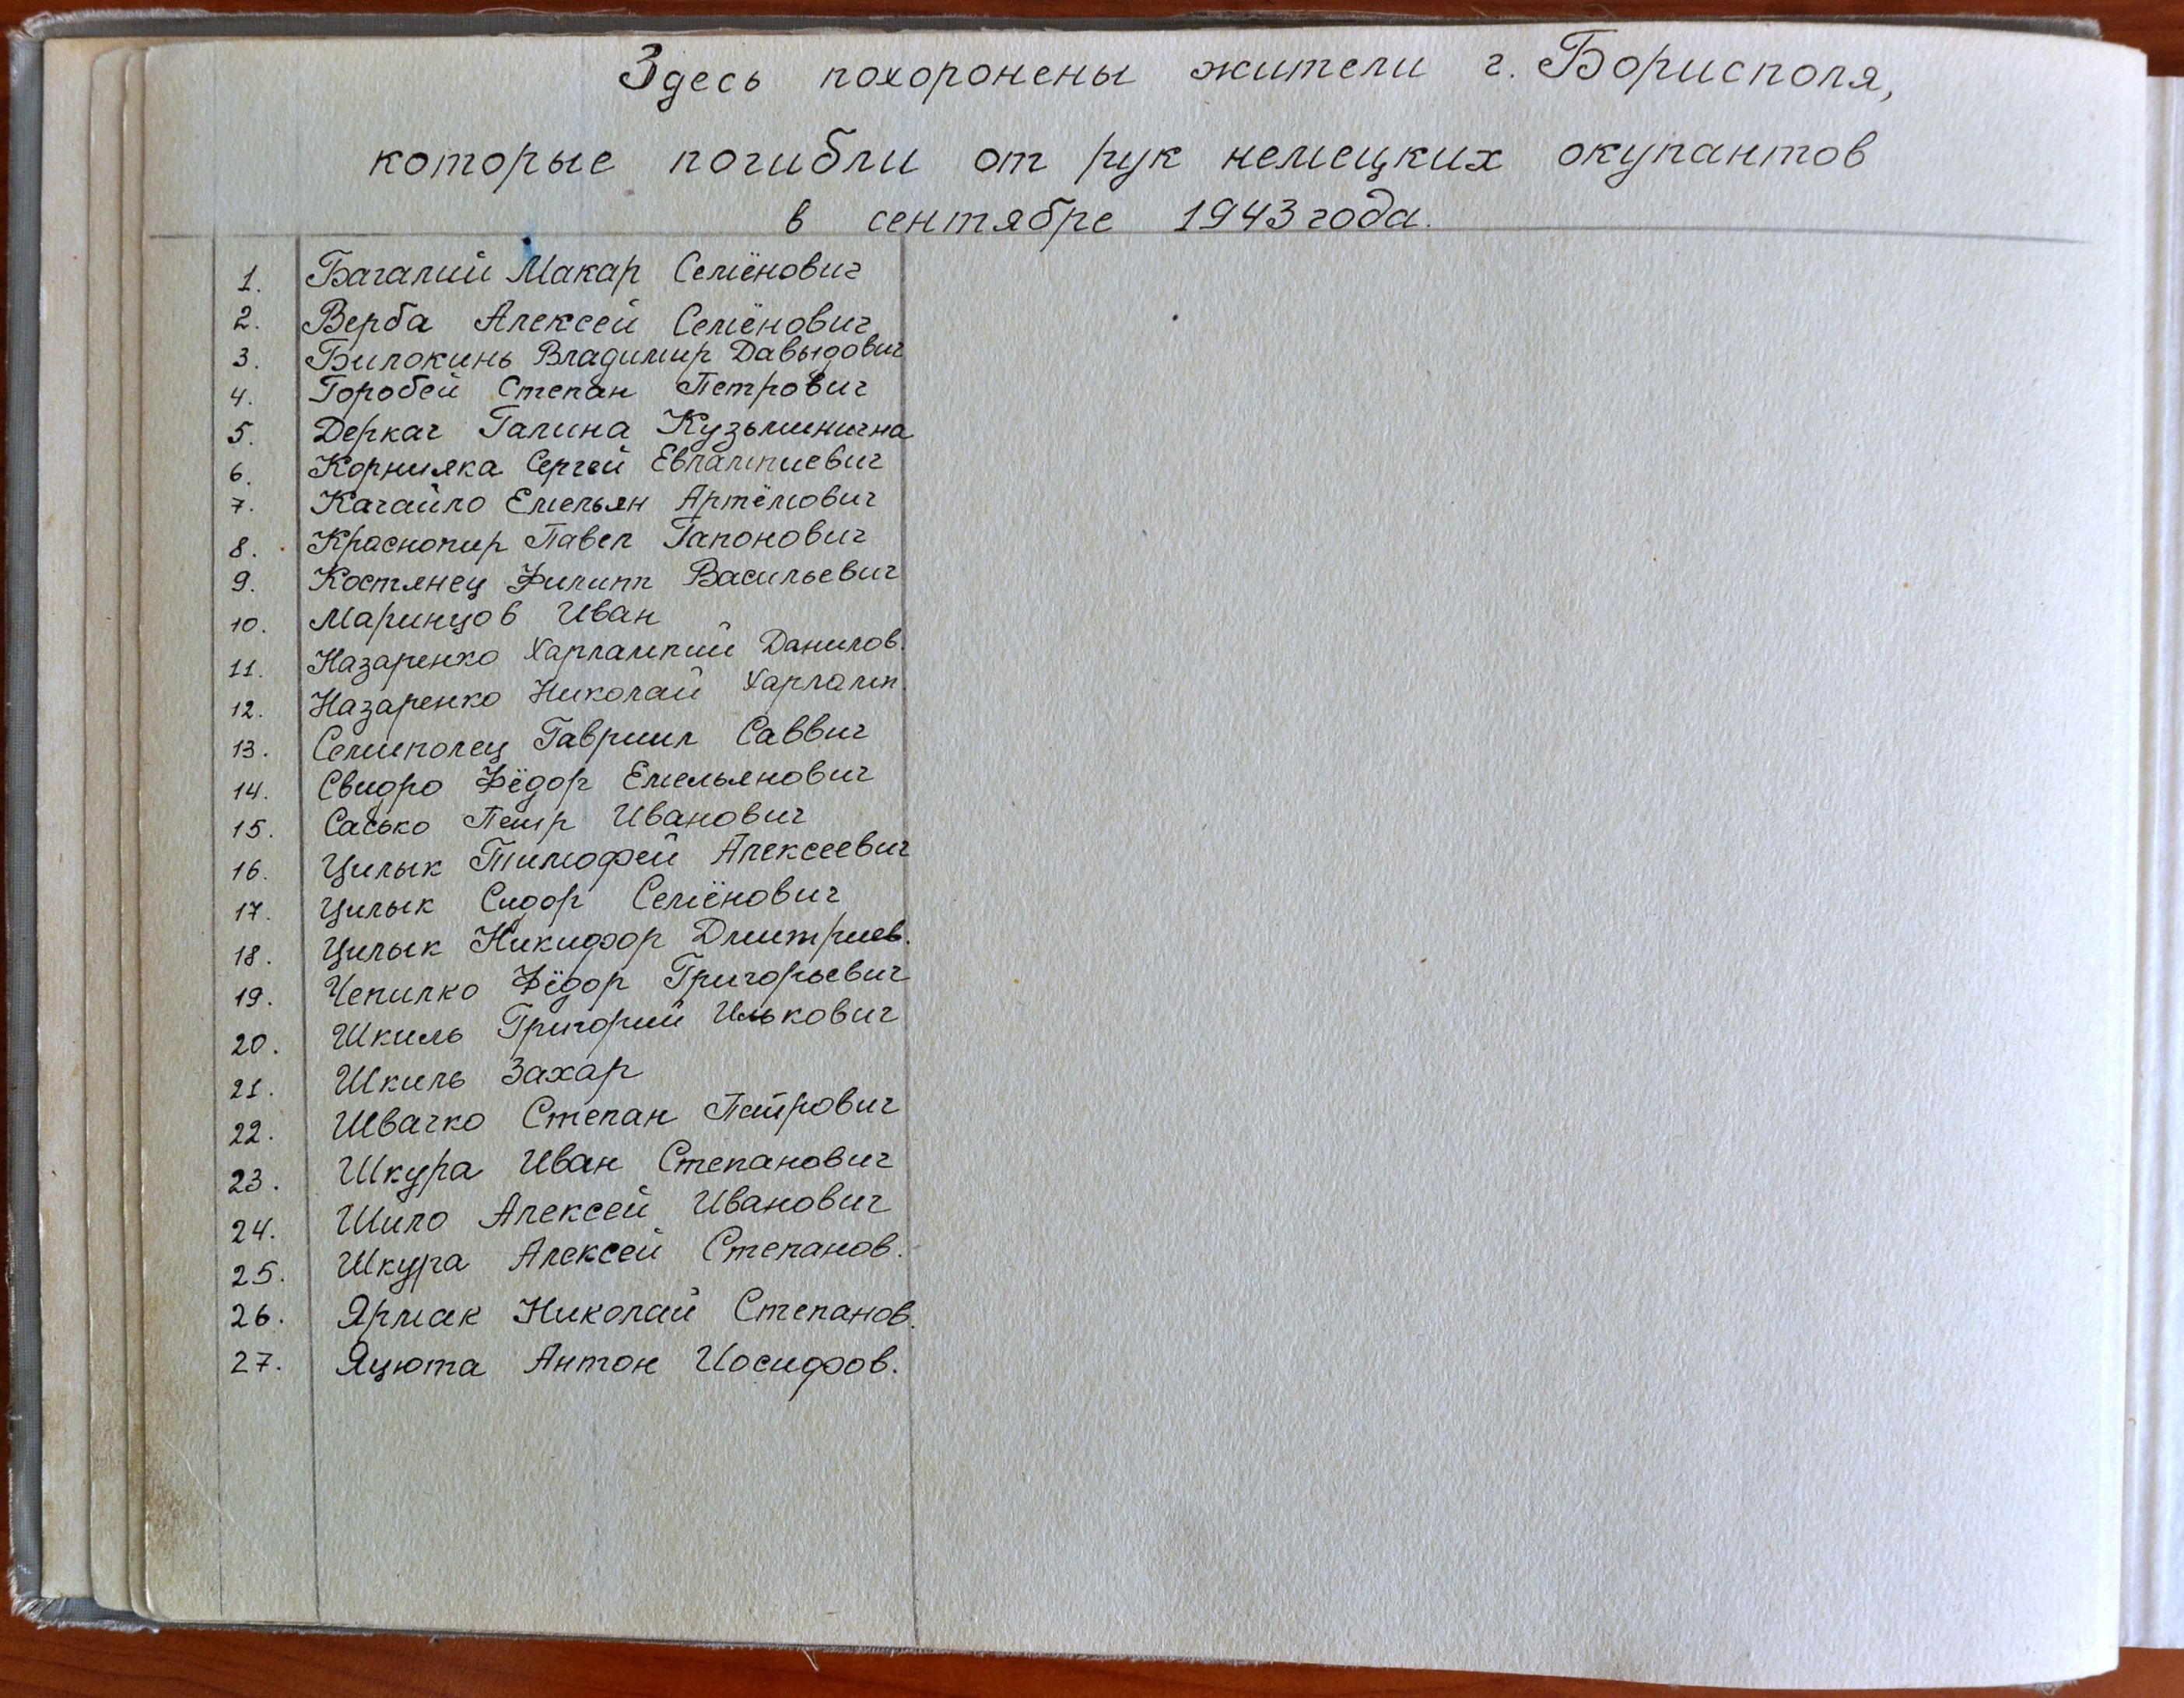 Здесь похоронены жители г. Борисполя,
которые погибли от рук немецких окупантов
в сентябре 1943 года.
1. Багалий Макар Семёнович
2. Верба Алексей Семёнович
3. Билокинь Владимир Давыдович
4. Горобей Степан Петрович
5. Деркач Галина Кузьминична
6. Корнияка Сергей Евлампиевич
7. Качайло Емельян Артёмович
8. Краснопир Павел Гапонович
9. Костянец Филипп Васильевич
10. Маринцов Иван
11. Назаренко Харлампий Данилов.
12. Назаренко Николай Харламп.
13. Семиполец Гавриил Саввич
14. Свидро Фёдор Емельянович
15. Сасько Петр Иванович
16. Цилык Тимофей Алексеевич
17. Цилык Сидор Семёнович
18. Цилык Никифор Дмитриев.
19. Чепилко Фёдор Григорьевич
20. Шкиль Григорий Илькович
21. Шкиль Захар
22. Швачко Степан Петрович
23. Шкура Иван Степанович
24. Шило Алексей Иванович
25. Шкура Алексей Степанов.
26. Ярмак Николай Степанов.
27. Яцюта Антон Иосифов.